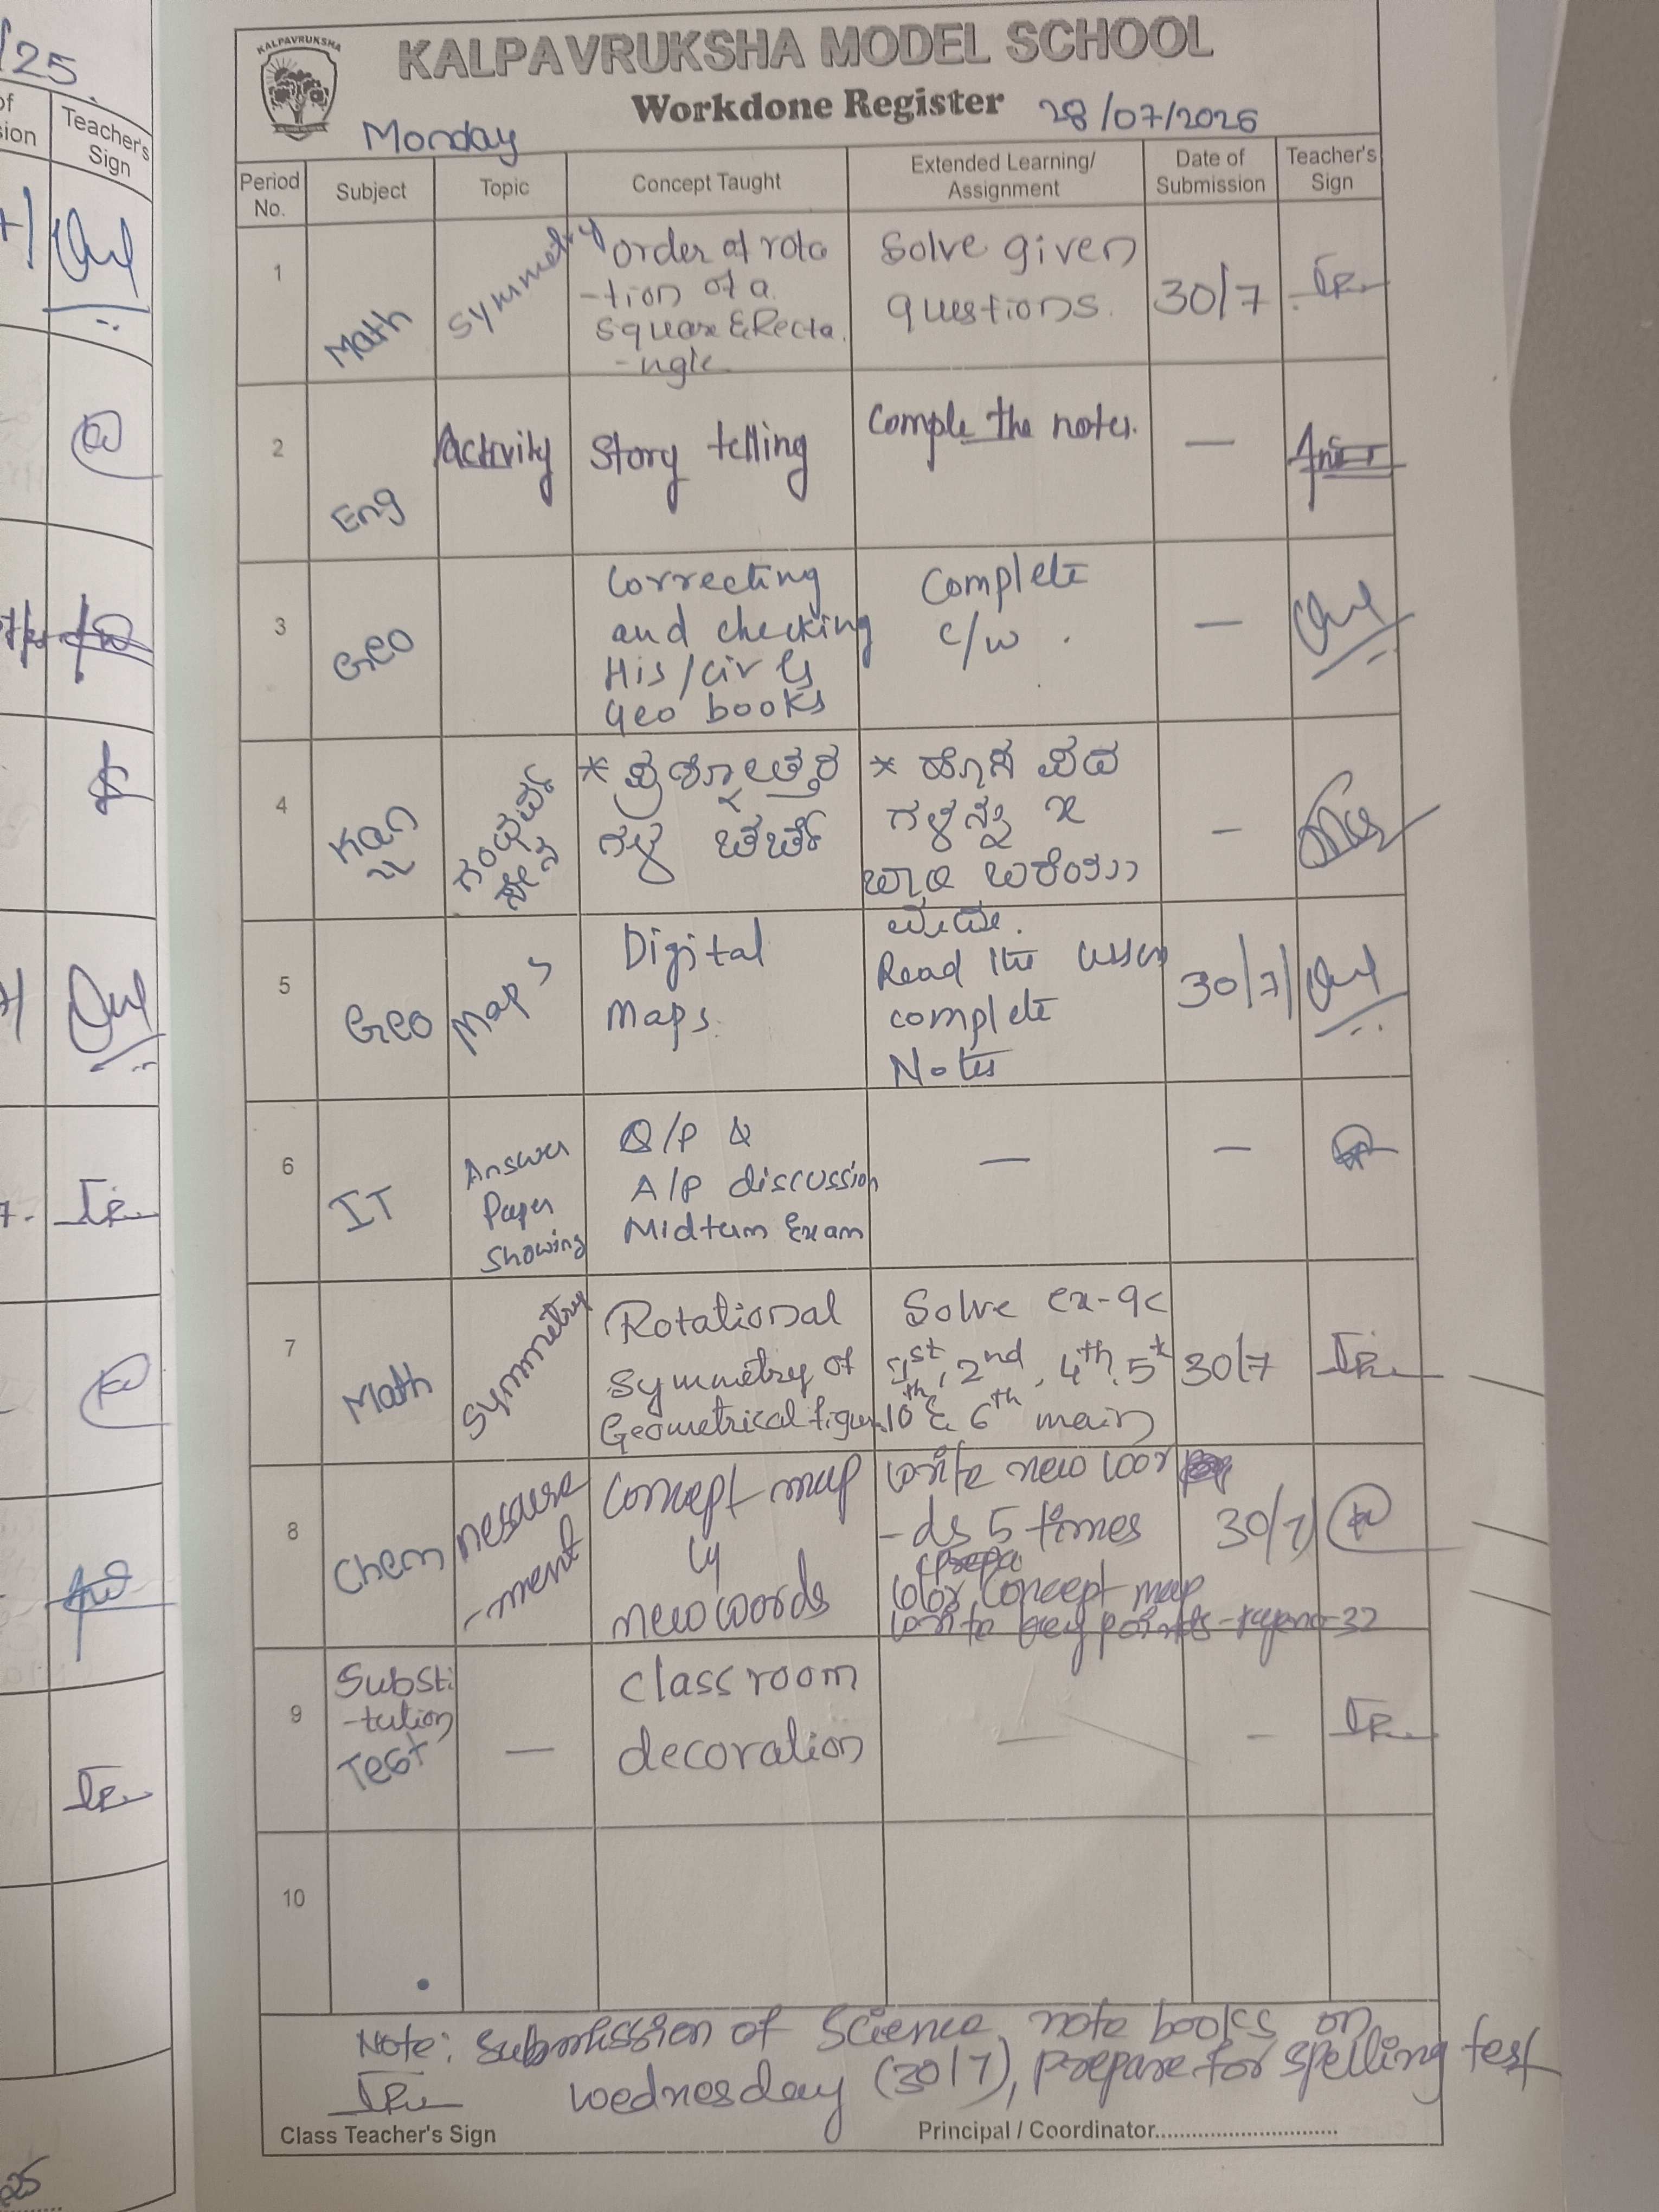 /25.
Teacher's
Sign
KALPAVRUKSHA
KALPAVRUKSHA MODEL SCHOOL
Workdone Register 28/07/2025
Monday
Period No. Subject Topic Concept Taught Extended Learning/ Assignment Date of Submission Teacher's Sign
1 Math Symmetry order of rota
-tion of a
square & Recta
-ngle
Solve given
questions.
30/7
2 Eng Activity Story telling Comple the notes. —
3 Geo Correcting
and checking
His/civ &
Geo books
Complete
c/w.
—
4 Kan
* ಪ್ರಶ್ನೋತ್ತರ
ಗಳ ಚರ್ಚೆ
* ಹೊಸ ಪದ
ಗಳನ್ನು x
ಬಾರಿ
–
5 Geo Maps Digital
Maps.
Read the
complete
Notes
30/7
6 IT Answer
Paper
Showing
Q/P &
A/P discussion
Midterm Exam
—
—
7 Math Symmetry Rotational
Symmetry of
Geometrical figur
Solve ex-9c
1st, 2nd, 4th, 5th
10th & 6th main
30/7
8 Chem mesaure
-ment
Concept map
new words
write new wor
-ds 5 times
color concept map
write key points - 32
30/7
9 Substi
-tution
Test
—
classroom
decoration
—
–
10
Note: Submission of Science note books on
wednesday (30/7), prepare for spelling test
Class Teacher's Sign Principal / Coordinator